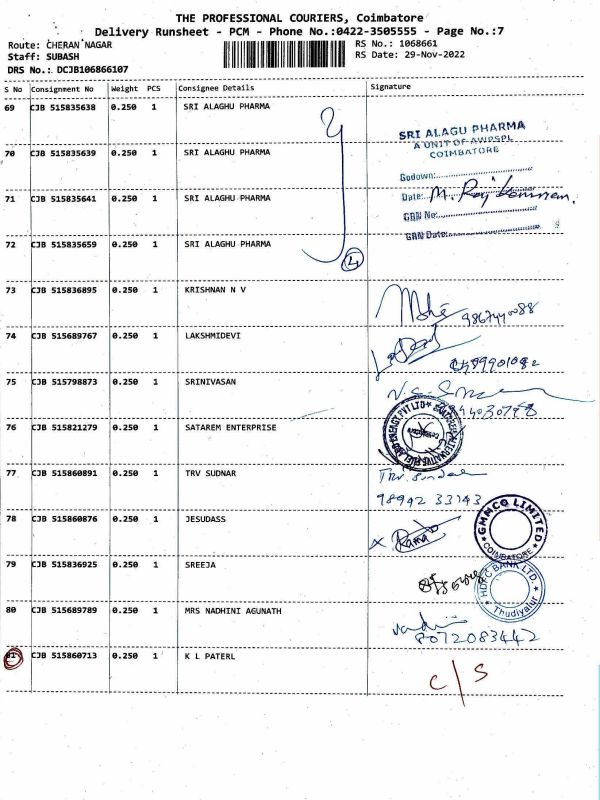 THE PROFESSIONAL COURIERS, Coimbatore
Delivery Runsheet - PCM - Phone No.:0422-3505555 - Page No.:7
Route: CHERAN NAGAR
RS No.: 1068661
Staff: SUBASH
RS Date: 29-Nov-2022
DRS No.: DCJB106866107
S No Consignment No Weight PCS Consignee Details Signature
69 CJB 515835638 0.250 1 SRI ALAGHU PHARMA
SRI ALAGU PHARMA
A UNIT OF AWPSPL
COIMBATORE
70 CJB 515835639 0.250 1 SRI ALAGHU PHARMA
Godown:
71 CJB 515835641 0.250 1 SRI ALAGHU PHARMA
Date: M. Raj
GRN No:
GRN Date:
72 CJB 515835659 0.250 1 SRI ALAGHU PHARMA
4
73 CJB 515836895 0.250 1 KRISHNAN N V
74 CJB 515689767 0.250 1 LAKSHMIDEVI
75 CJB 515798873 0.250 1 SRINIVASAN
76 CJB 515821279 0.250 1 SATAREM ENTERPRISE
77 CJB 515860891 0.250 1 TRV SUDNAR
98942 33143
78 CJB 515860876 0.250 1 JESUDASS
GMMCO LIMITED
COIMBATORE
79 CJB 515836925 0.250 1 SREEJA
HDFC BANK LTD.
Thudiyalur
80 CJB 515689789 0.250 1 MRS NADHINI AGUNATH
8072083442
81 CJB 515860713 0.250 1 K L PATERL
C/S